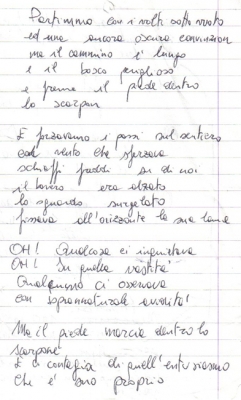 Partimmo con i volti sotto vento
ed una ancora oscura convinzion
ma il cammino è lungo
e il bosco periglioso
e preme il piede dentro
lo scarpon
E pesavamo i passi sul sentiero
col vento che sferzava
schiaffi freddi su di noi
il bavero era alzato
lo sguardo surgelato
fissava all'orizzonte la sua luna
OH! Qualcosa ci inquietava
OH! Su quella vastità
Qualcuno ci osservava
con soprannaturale avidità
Ma il piede marcia dentro lo
scarpone
E ci contagia di quell'entusiasmo
che è suo proprio